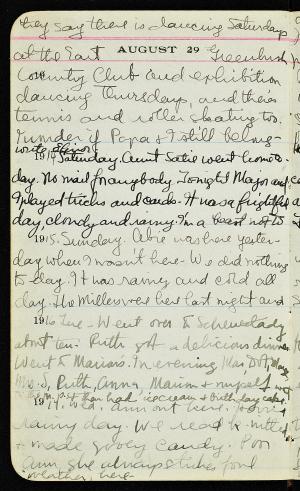 they say there is dancing Saturdays
at the East Greenbush
AUGUST 29
Country Club and exhibition
dancing Thursdays, and theirs
tennis and roller skating too.
Wonder if Papa & I still belong -
1914 Saturday Aunt Satie went home to-
day. No mail for anybody. Tonight Major and
I played tricks and cards. It was a frightful
day, cloudy and rainy. I'm a beast not to
1915. Sunday. Abie was here yester-
day when I wasn't here - We did nothing
to day. It was rainy and cold all
day. The Millers were here last night and
1916 Tue - Went over to Schenectady
about ten. Ruth got a delicious dinner
Went to Marion's. In evening, Mar, Dot, Mary
Ruth, Anna, Marion & myself
had icecream & birthday cake
1917. Wed. Ann out here.
rainy day. We read & knitted
& made gooey candy. Poor
Ann she always strikes
weather here